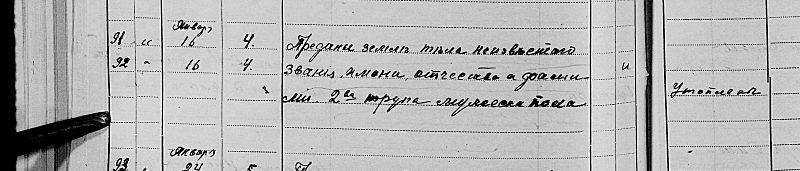 Январь
91 " 16 4. Преданы землѣ тѣла неизвѣстнаго
92 " 16 4. званія, имени, отчества и фамил- и
ліи. 2ва трупа мужеска пола Утопленн
Январь
93 " 24